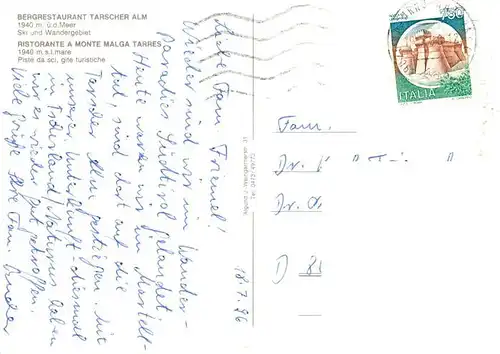 BERGRESTAURANT TARSCHER ALM
1940 m. ü.d.Meer
Ski und Wandergebiet
RISTORANTE A MONTE MALGA TARRES
1940 m.s.l.mare
Piste da sci, gite turistiche
Liebe Fam.
Wieder sind wir im Wander-
Paradies Südtirol gelandet.
Heute waren wir im Martell-
tal, sind dort auf die
Tarscher Alm gestiegen. Mit
unserer Unterkunft diesmal
in Tschirland/Naturns haben
wir es wieder gut getroffen.
Viele Grüße Ihre Fam.
18.7.96
ITALIA
Fam.
Dr.
Dr.
D